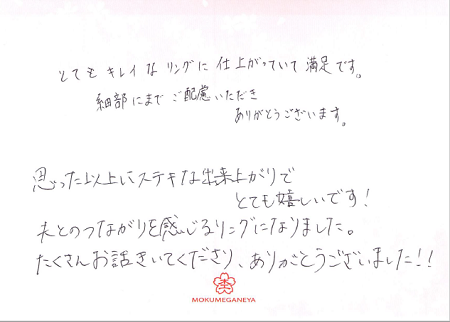 とてもキレイなリングに仕上がっていて満足です。
細部にまでご配慮いただき
ありがとうございます。
思った以上にステキな出来上がりで
とても嬉しいです!
夫とのつながりを感じるリングになりました。
たくさんお話きいてくださり、ありがとうございました!!
MOKUMEGANEYA